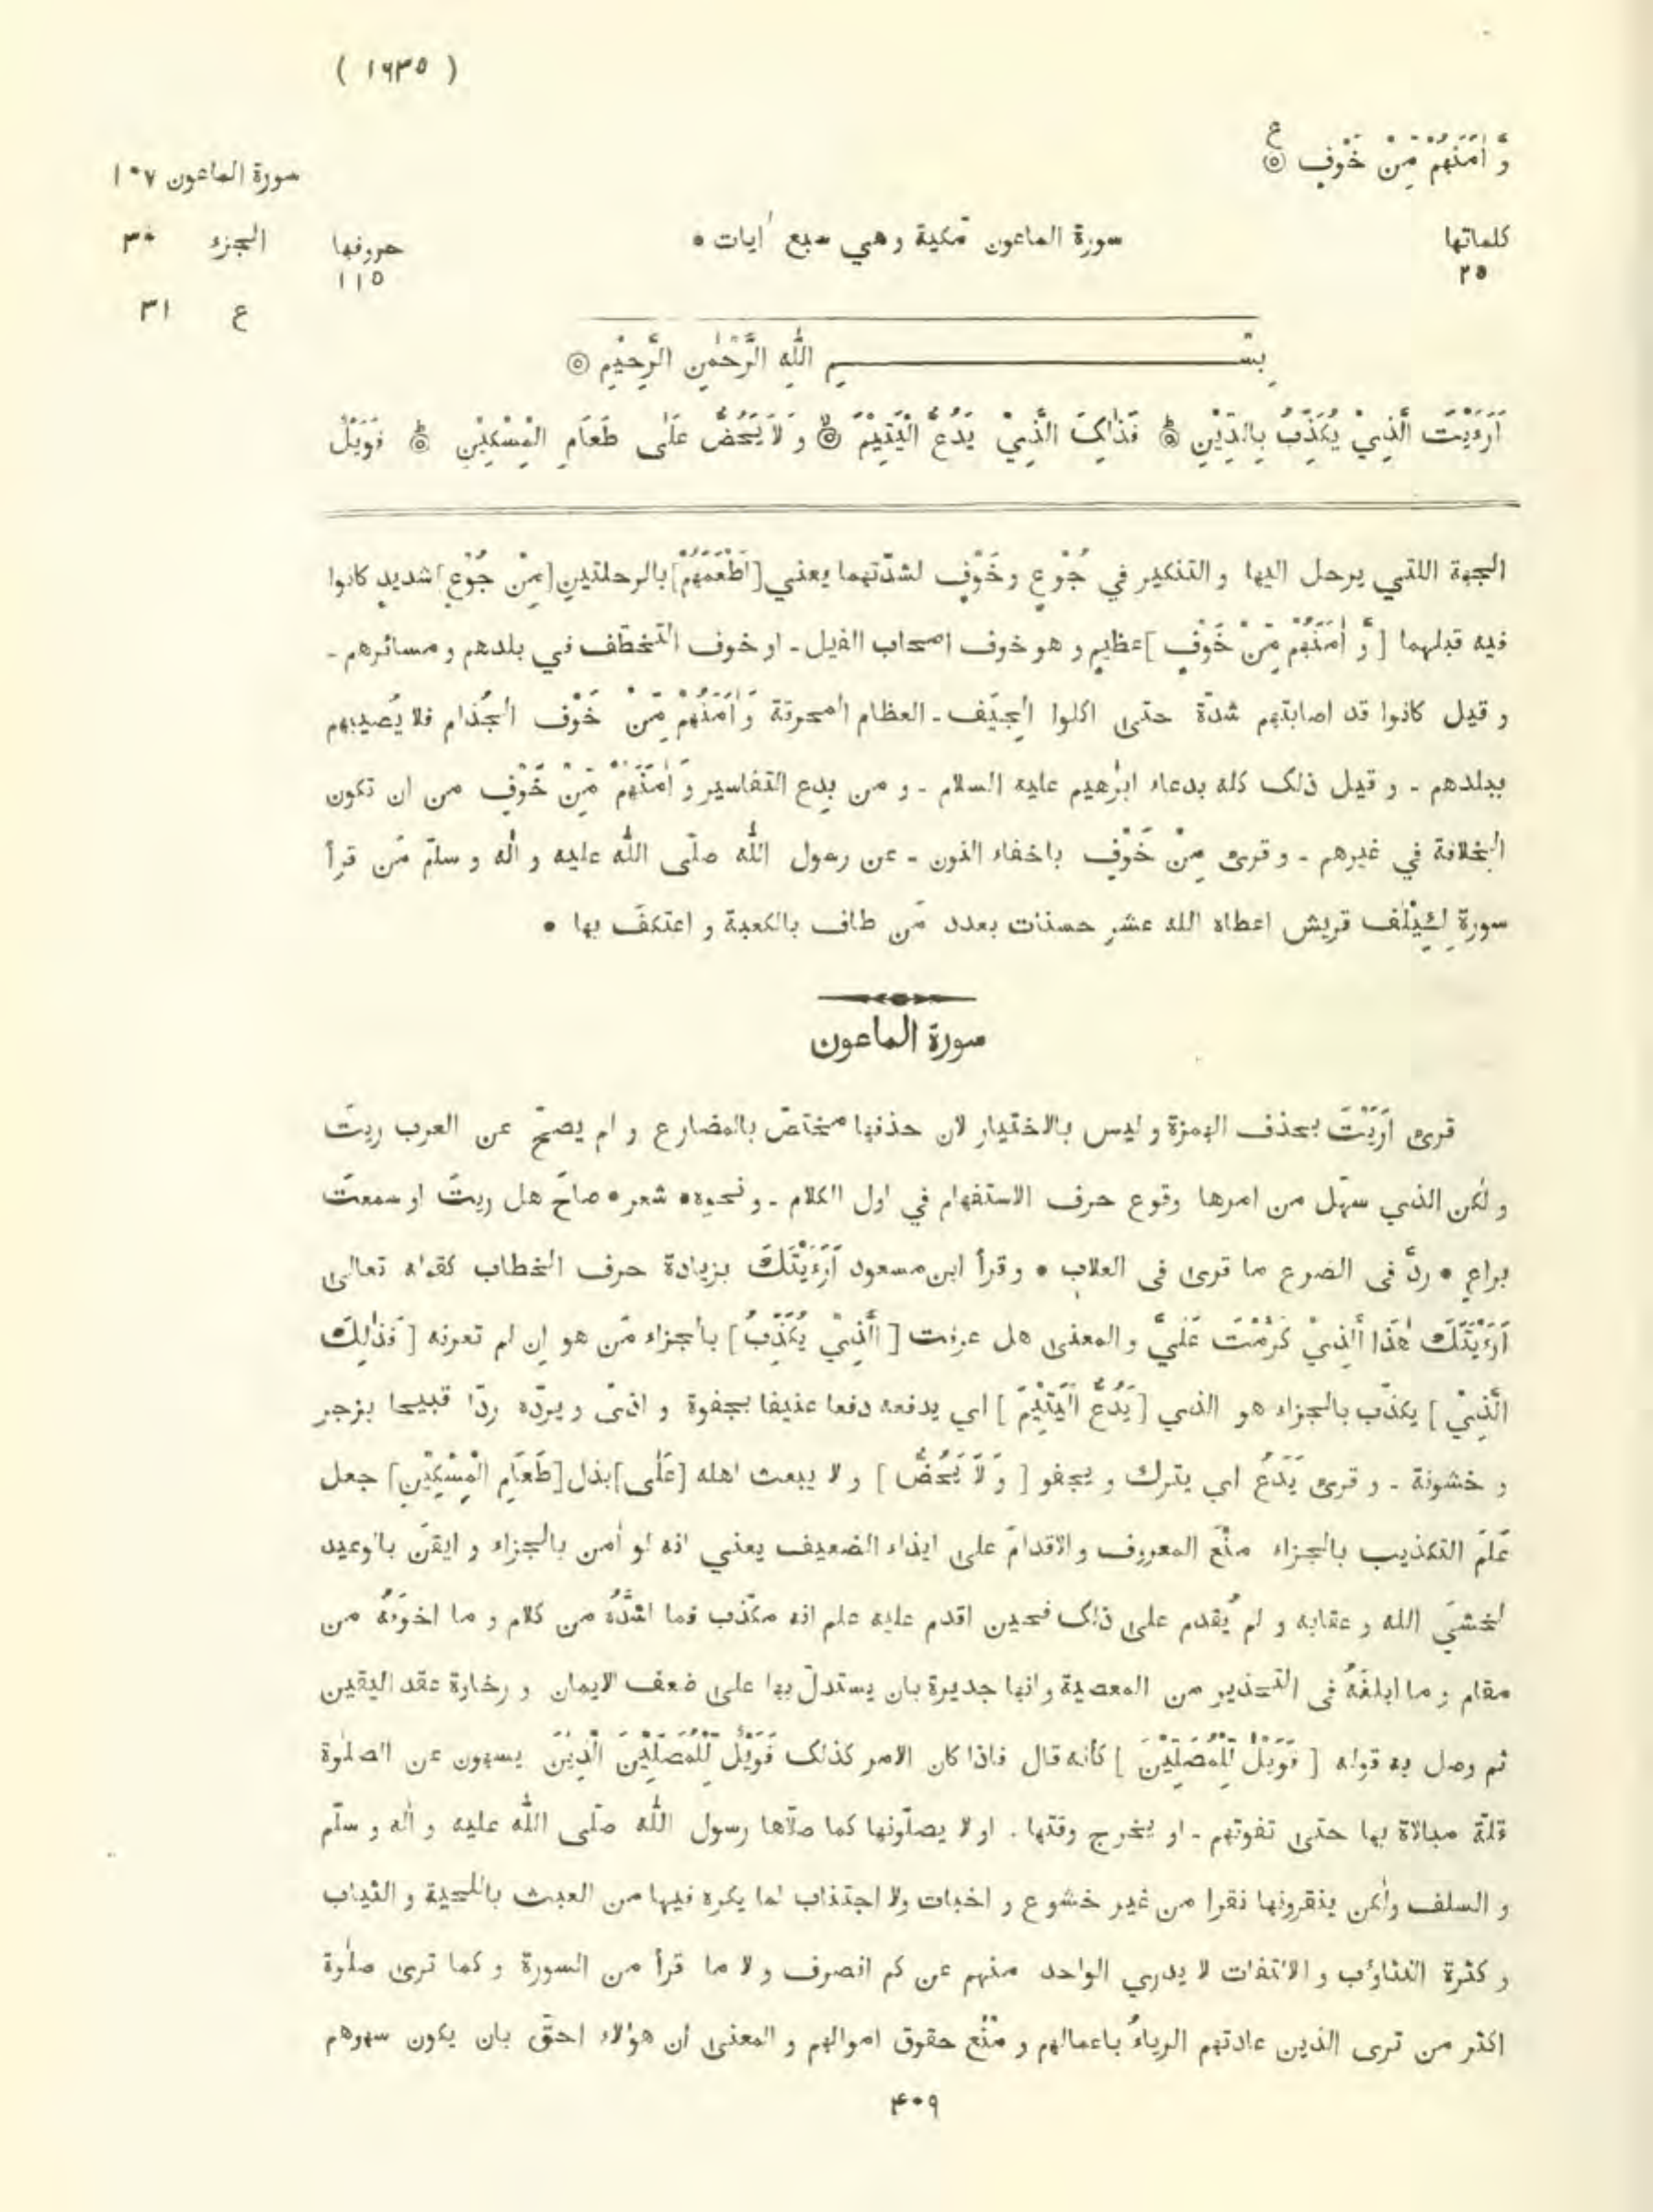 ( ۱۶۳۵ )
وَّ اٰمَنَهُمْ مِّنْ خَوْفٍ ۝ ع
سورة الماعون ۱۰۷
كلماتها سورة الماعون مكية وهي سبع اٰيات • حروفها الجزء ۳۰
۲۵ ۱۱۵
ع ۳۱
بِسْـــــــمِ اللّٰهِ الرَّحْمٰنِ الرَّحِيْمِ ۝
اَرَءَيْتَ الَّذِيْ يُكَذِّبُ بِالدِّيْنِ ۝ فَذٰلِكَ الَّذِيْ يَدُعُّ الْيَتِيْمَ ۝ وَ لَا يَحُضُّ عَلٰى طَعَامِ الْمِسْكِيْنِ ۝ فَوَيْلٌ
الجهة اللتي يرحل اليها و التنكير في جُوْعٍ و خَوْفٍ لشدّتهما يعني [اَطْعَمَهُمْ] بالرحلتين [مِنْ جُوْعٍ] شديدٍ كانوا
فيه قبلهما [ وَّ اٰمَنَهُمْ مِّنْ خَوْفٍ ] عظيمٍ و هو خوف اصحاب الفيل - او خوف التخطّف في بلدهم و مسائرهم -
و قيل كانوا قد اصابتهم شدّة حتى اكلوا الجِيَف - العظام المحرقة وَ اٰمَنَهُمْ مِّنْ خَوْف الجُذام فلا يُصيبهم
ببلدهم - و قيل ذلك كله بدعاء ابرٰهيم عليه السلام - و من بِدع التفاسير وَ اٰمَنَهُمْ مِّنْ خَوْفٍ من ان تكون
الخلافة في غيرهم - و قرئ مِنْ خَوْفٍ باخفاء النون - عن رسول اللّٰه صلّى اللّٰه عليه و اٰله و سلّم مَن قرأ
سورةِ لِئِيْلٰف قريش اعطاه الله عشر حسنات بعدد مَن طاف بالكعبة و اعتكفَ بها •
سورة الماعون
قرئ اَرَيْتَ بحذف الهمزة و ليس بالاختيار لان حذفها مختصّ بالمضارع و لم يصحّ عن العرب ريتَ
و لٰكن الذي سهّل من امرها وقوع حرف الاستفهام في اول الكلام - و نحوه • شعر • صاحَ هل ريتَ او سمعتَ
براعٍ • ردَّ فى الضرع ما قرى فى العلاب • و قرأ ابن مسعود اَرَءَيْتَكَ بزيادة حرف الخطاب كقوله تعالى
اَرَءَيْتَكَ هٰذَا الَّذِيْ كَرَّمْتَ عَلَيَّ و المعنى هل عرفت [ الَّذِيْ يُكَذِّبُ ] بالجزاء مَن هو اِن لم تعرفه [ فَذٰلِكَ
الَّذِيْ ] يكذّب بالجزاء هو الذي [ يَدُعُّ الْيَتِيْمَ ] اي يدفعه دفعا عنيفا بجفوة و اذىً و يردّه ردّا قبيحا بزجر
و خشونة - و قرئ يَدَعُ اي يترك و يجفو [ وَ لَا يَحُضُّ ] و لا يبعث اهله [عَلٰى] بذل [طَعَامِ الْمِسْكِيْنِ] جعل
عَلَمَ التكذيب بالجزاء منْعَ المعروف و الاقدامَ على ايذاء الضعيف يعني انه لو اٰمن بالجزاء و ايقنَ بالوعيد
لخشيَ الله و عقابه و لم يُقدم على ذلك فحين اقدم عليه علم انه مكذّب فما اشدَّهُ من كلام و ما اخوفَهُ من
مقام و ما ابلغَهُ فى التحذير من المعصية و انها جديرة بان يستدلّ بها على ضعف الايمان و رخارة عقد اليقين
ثم وصل به قوله [ فَوَيْلٌ لِّلْمُصَلِّيْنَ ] كأنه قال فاذا كان الامر كذلك فَوَيْلٌ لِّلْمُصَلِّيْنَ الَّذِيْنَ يسهون عن الصلٰوة
قلّة مبالاة بها حتى تفوتهم - او يخرج وقتها . او لا يصلّونها كما صلّاها رسول اللّٰه صلّى اللّٰه عليه و اٰله و سلّم
و السلف ولٰكن ينقرونها نقرا من غير خشوع و اخبات ولا اجتناب لما يكره فيها من العبث باللحية و الثياب
و كثرة التثاؤب و الالتفات لا يدري الواحد منهم عن كم انصرف و لا ما قرأ من السورة و كما ترى صلٰوة
اكثر من ترى الذين عادتهم الرياءُ باعمالهم و منْع حقوق اموالهم و المعنى ان هؤلاء احقّ بان يكون سهوهم
۴۰۹